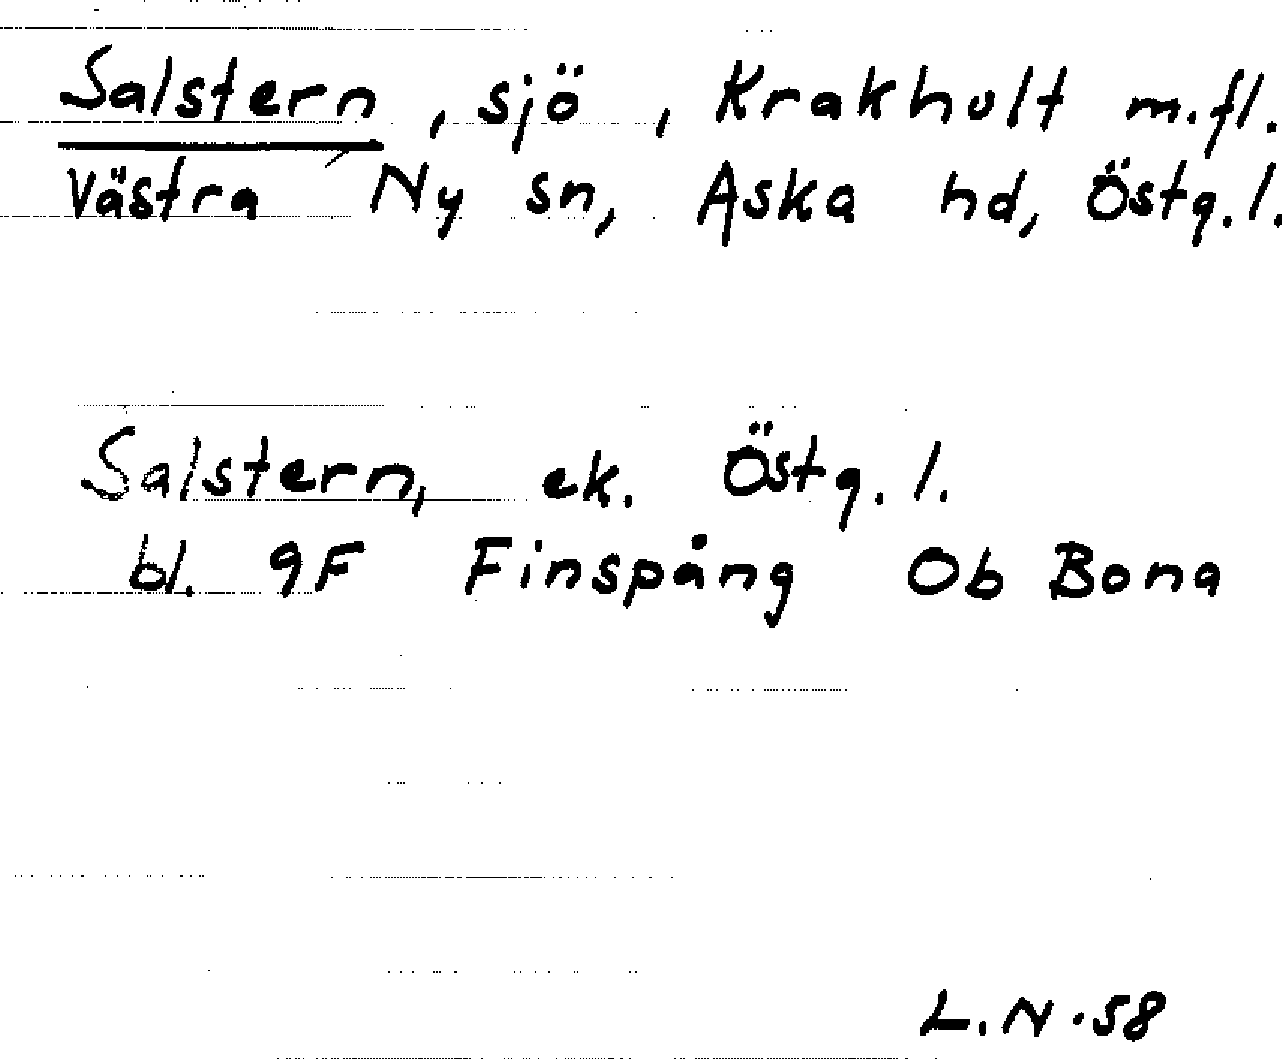 Salstern, sjö, Krakhult m.fl.
Västra Ny sn, Aska hd, Östg.l.
Salstern, ek. Östg.l.
bl. 9F Finspång 0b Bona
L.N.58